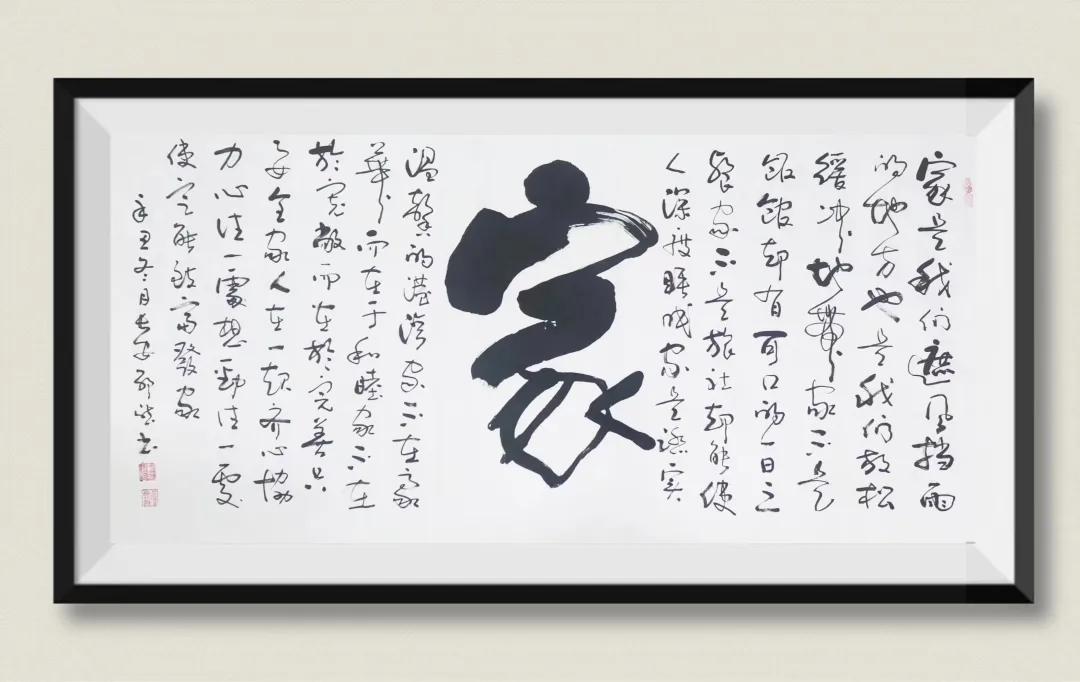 家是我们遮風挡雨
的地方也是我们放松
緩冲地带家不是
飯館却有可口的一日三
餐家不是旅社却能使
人深度睡眠家是踏实
家
温馨的港湾家不在豪
華而在于和睦家不在
於宽敞而在於完善只
要全家人在一起齐心協
力心往一處想勁往一處
使定能致富發家
辛丑冬月长安书